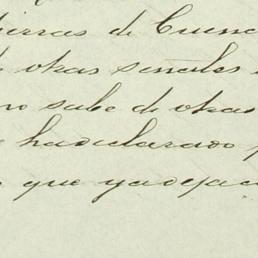 tierras de Cuenc
otras señales
no sabe de otras
hadeclarado
que yadejac